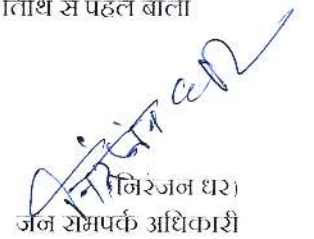 तिथि से पहले बोली
(निरंजन धर)
जन सम्पर्क अधिकारी